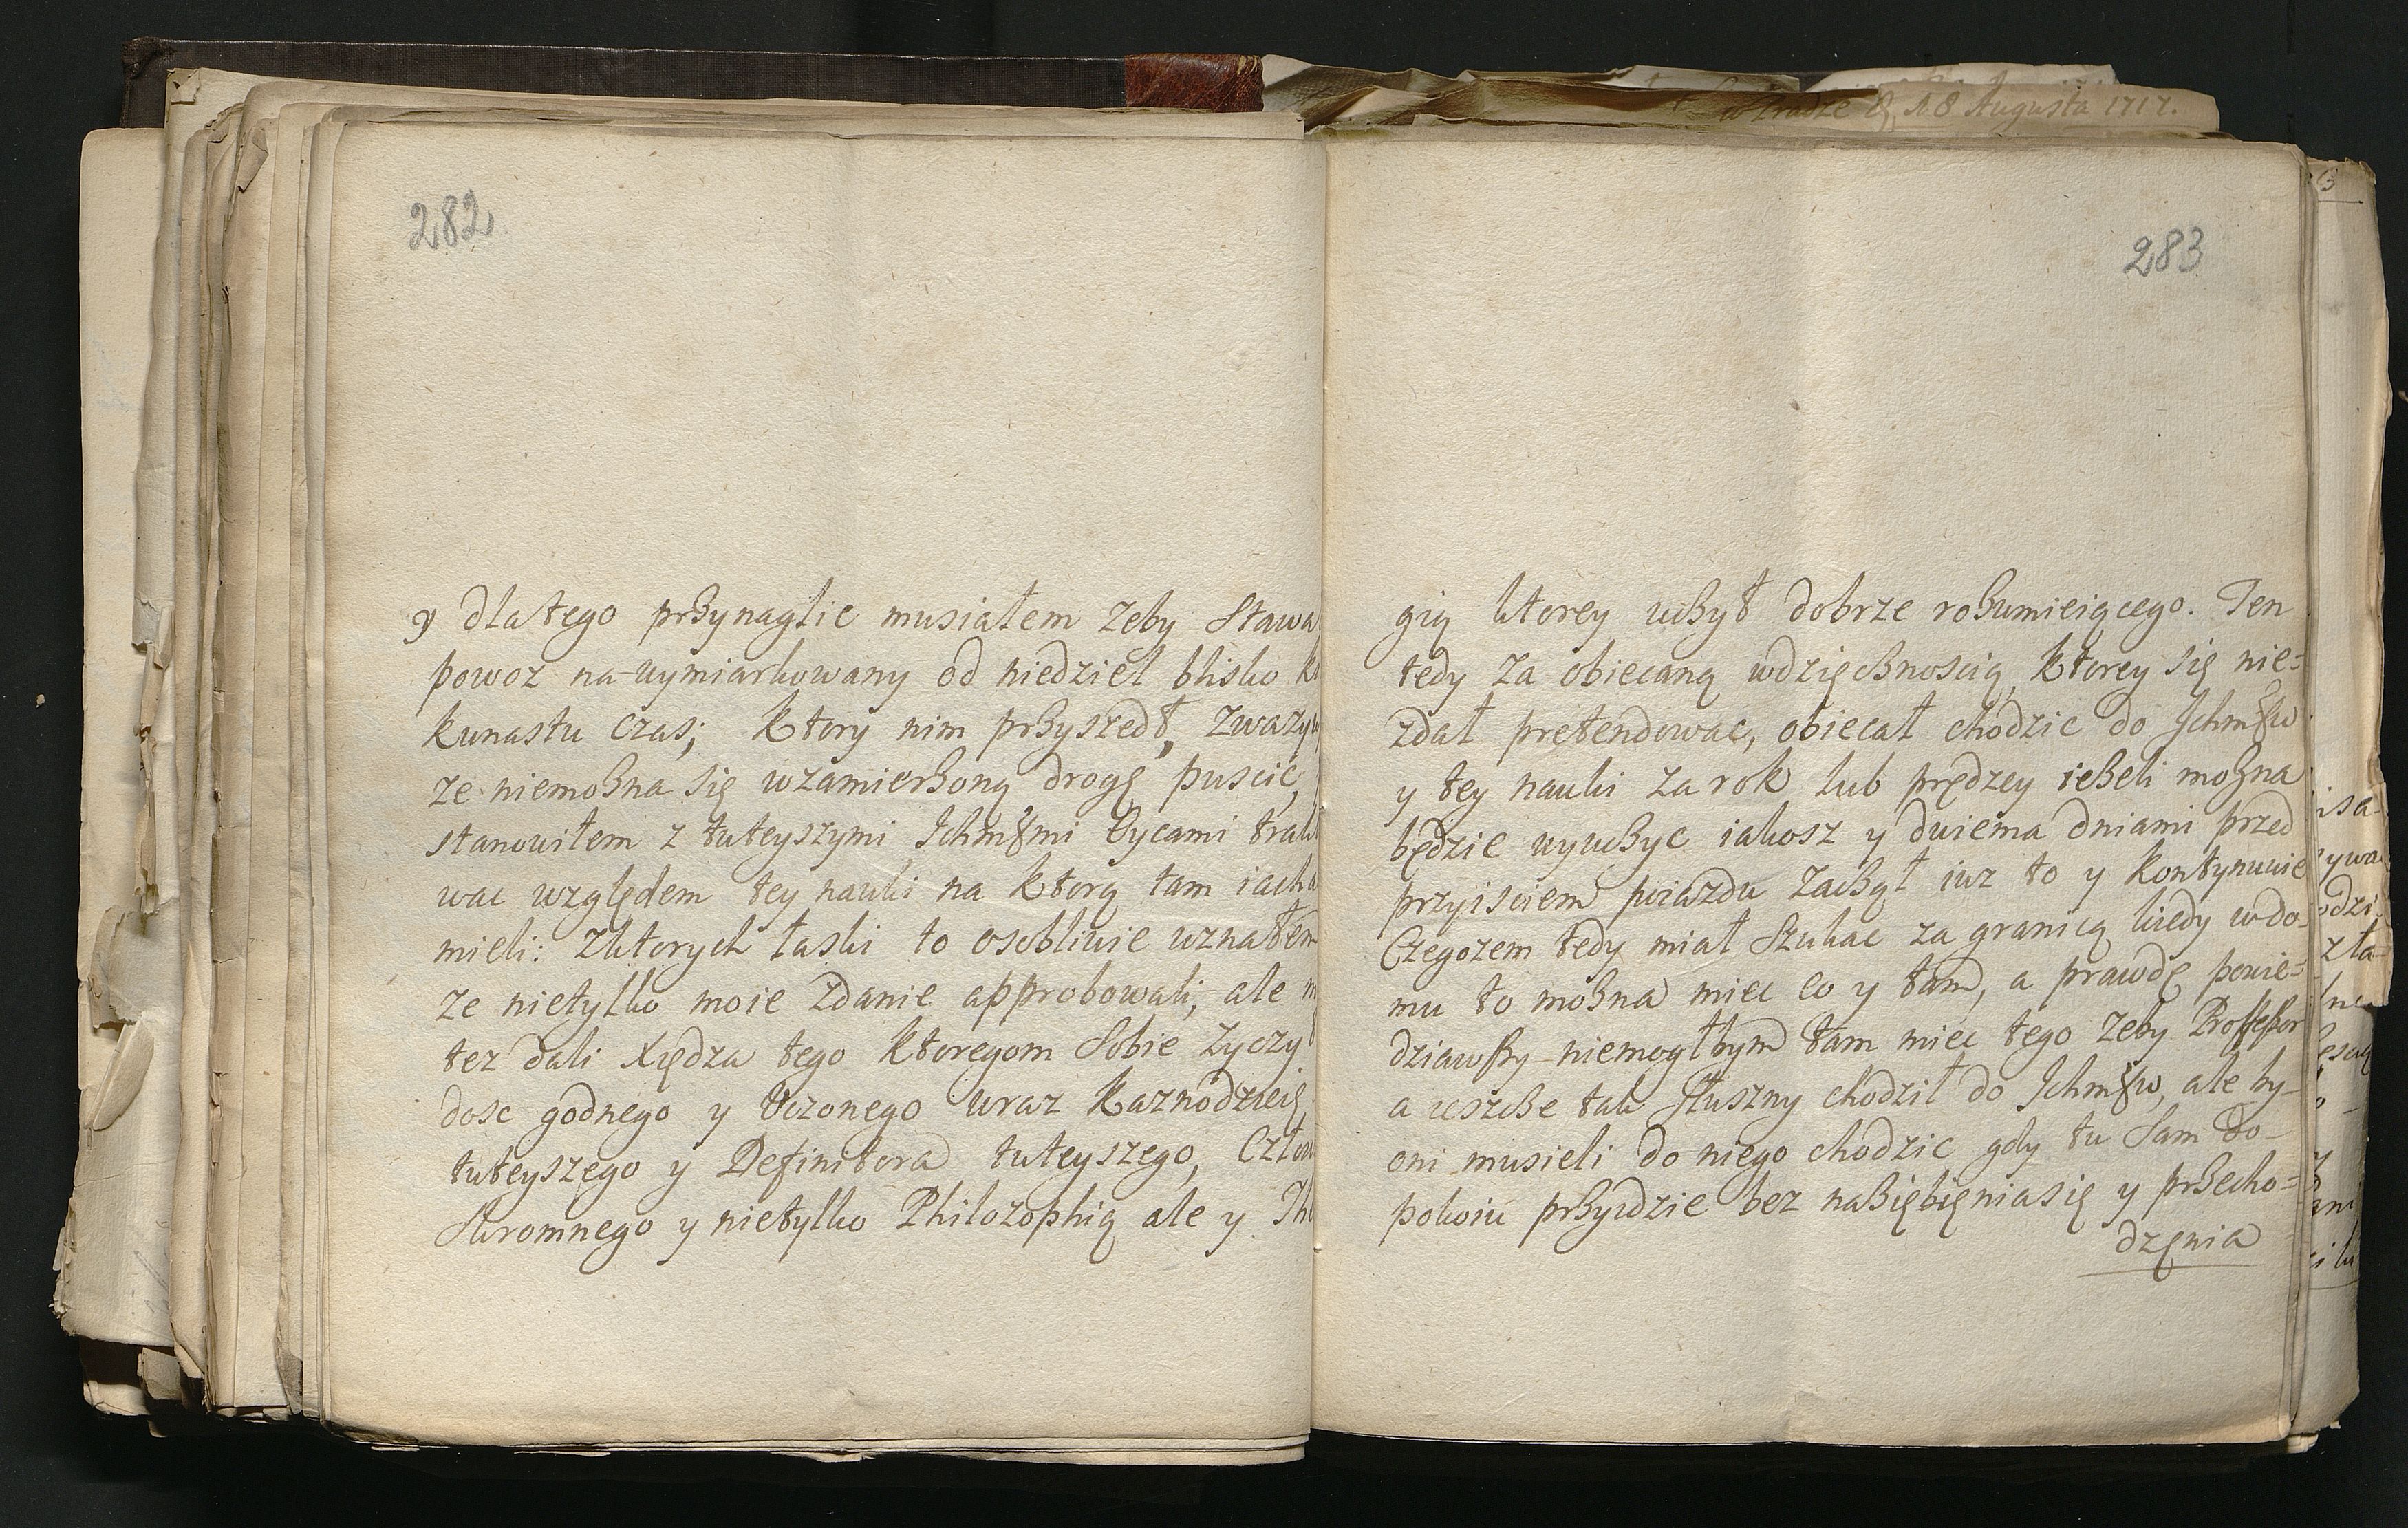 w Pradze D. 18 Augusta 1717.
282
y dlatego przynaglic musiałem zeby Stawa
powoz na wymiarkowany od niedziel blisko k
kunastu czas; ktory nim przyszedł, zwazy
ze niemozna się wzamierzoną drogę puscic,
stanowiłem z tuteyszymi Ichmſmi Oycami trakt
wac względem tey nauki na ktorą tam iacha
mieli: zktorych łaski to osobliwie uznałem
ze nietylko moie zdanie approbowali, ale
tez dali Xiędza tego ktoregom Sobie zyczył
dosc godnego y Uczonego wraz Kaznodzieię
tuteyszego y Definitora tuteyszego, Człow
Skromnego y nietylko Philozophią ale y Th
283
gią ktorey uczył dobrze rozumieiącego. Ten
tedy za obiecaną wdzięcznoscią, ktorey się nie=
zdał pretendowac, obiecał chodzic do Ichmſw
y tey nauki za rok lub prędzey iezeli mozna
będzie wyuczyc iakosz y dwiema dniami przed
przyisciem poiazdu zaczął iuz to y kontynuuie
Czegozem tedy miał Szukac za granicą kiedy wdo-
mu to mozna miec co y tam, a prawdę powie=
dziawszy niemogłbym tam miec tego zeby Professor
a ieszcze tak Słuszny chodził do Ichmſw, ale by-
oni musieli do niego chodzic gdy tu Sam do-
pokoiu przyidzie bez naziębięniasię y przecho=
dzęnia
isa-
ywa
odzi
zła-